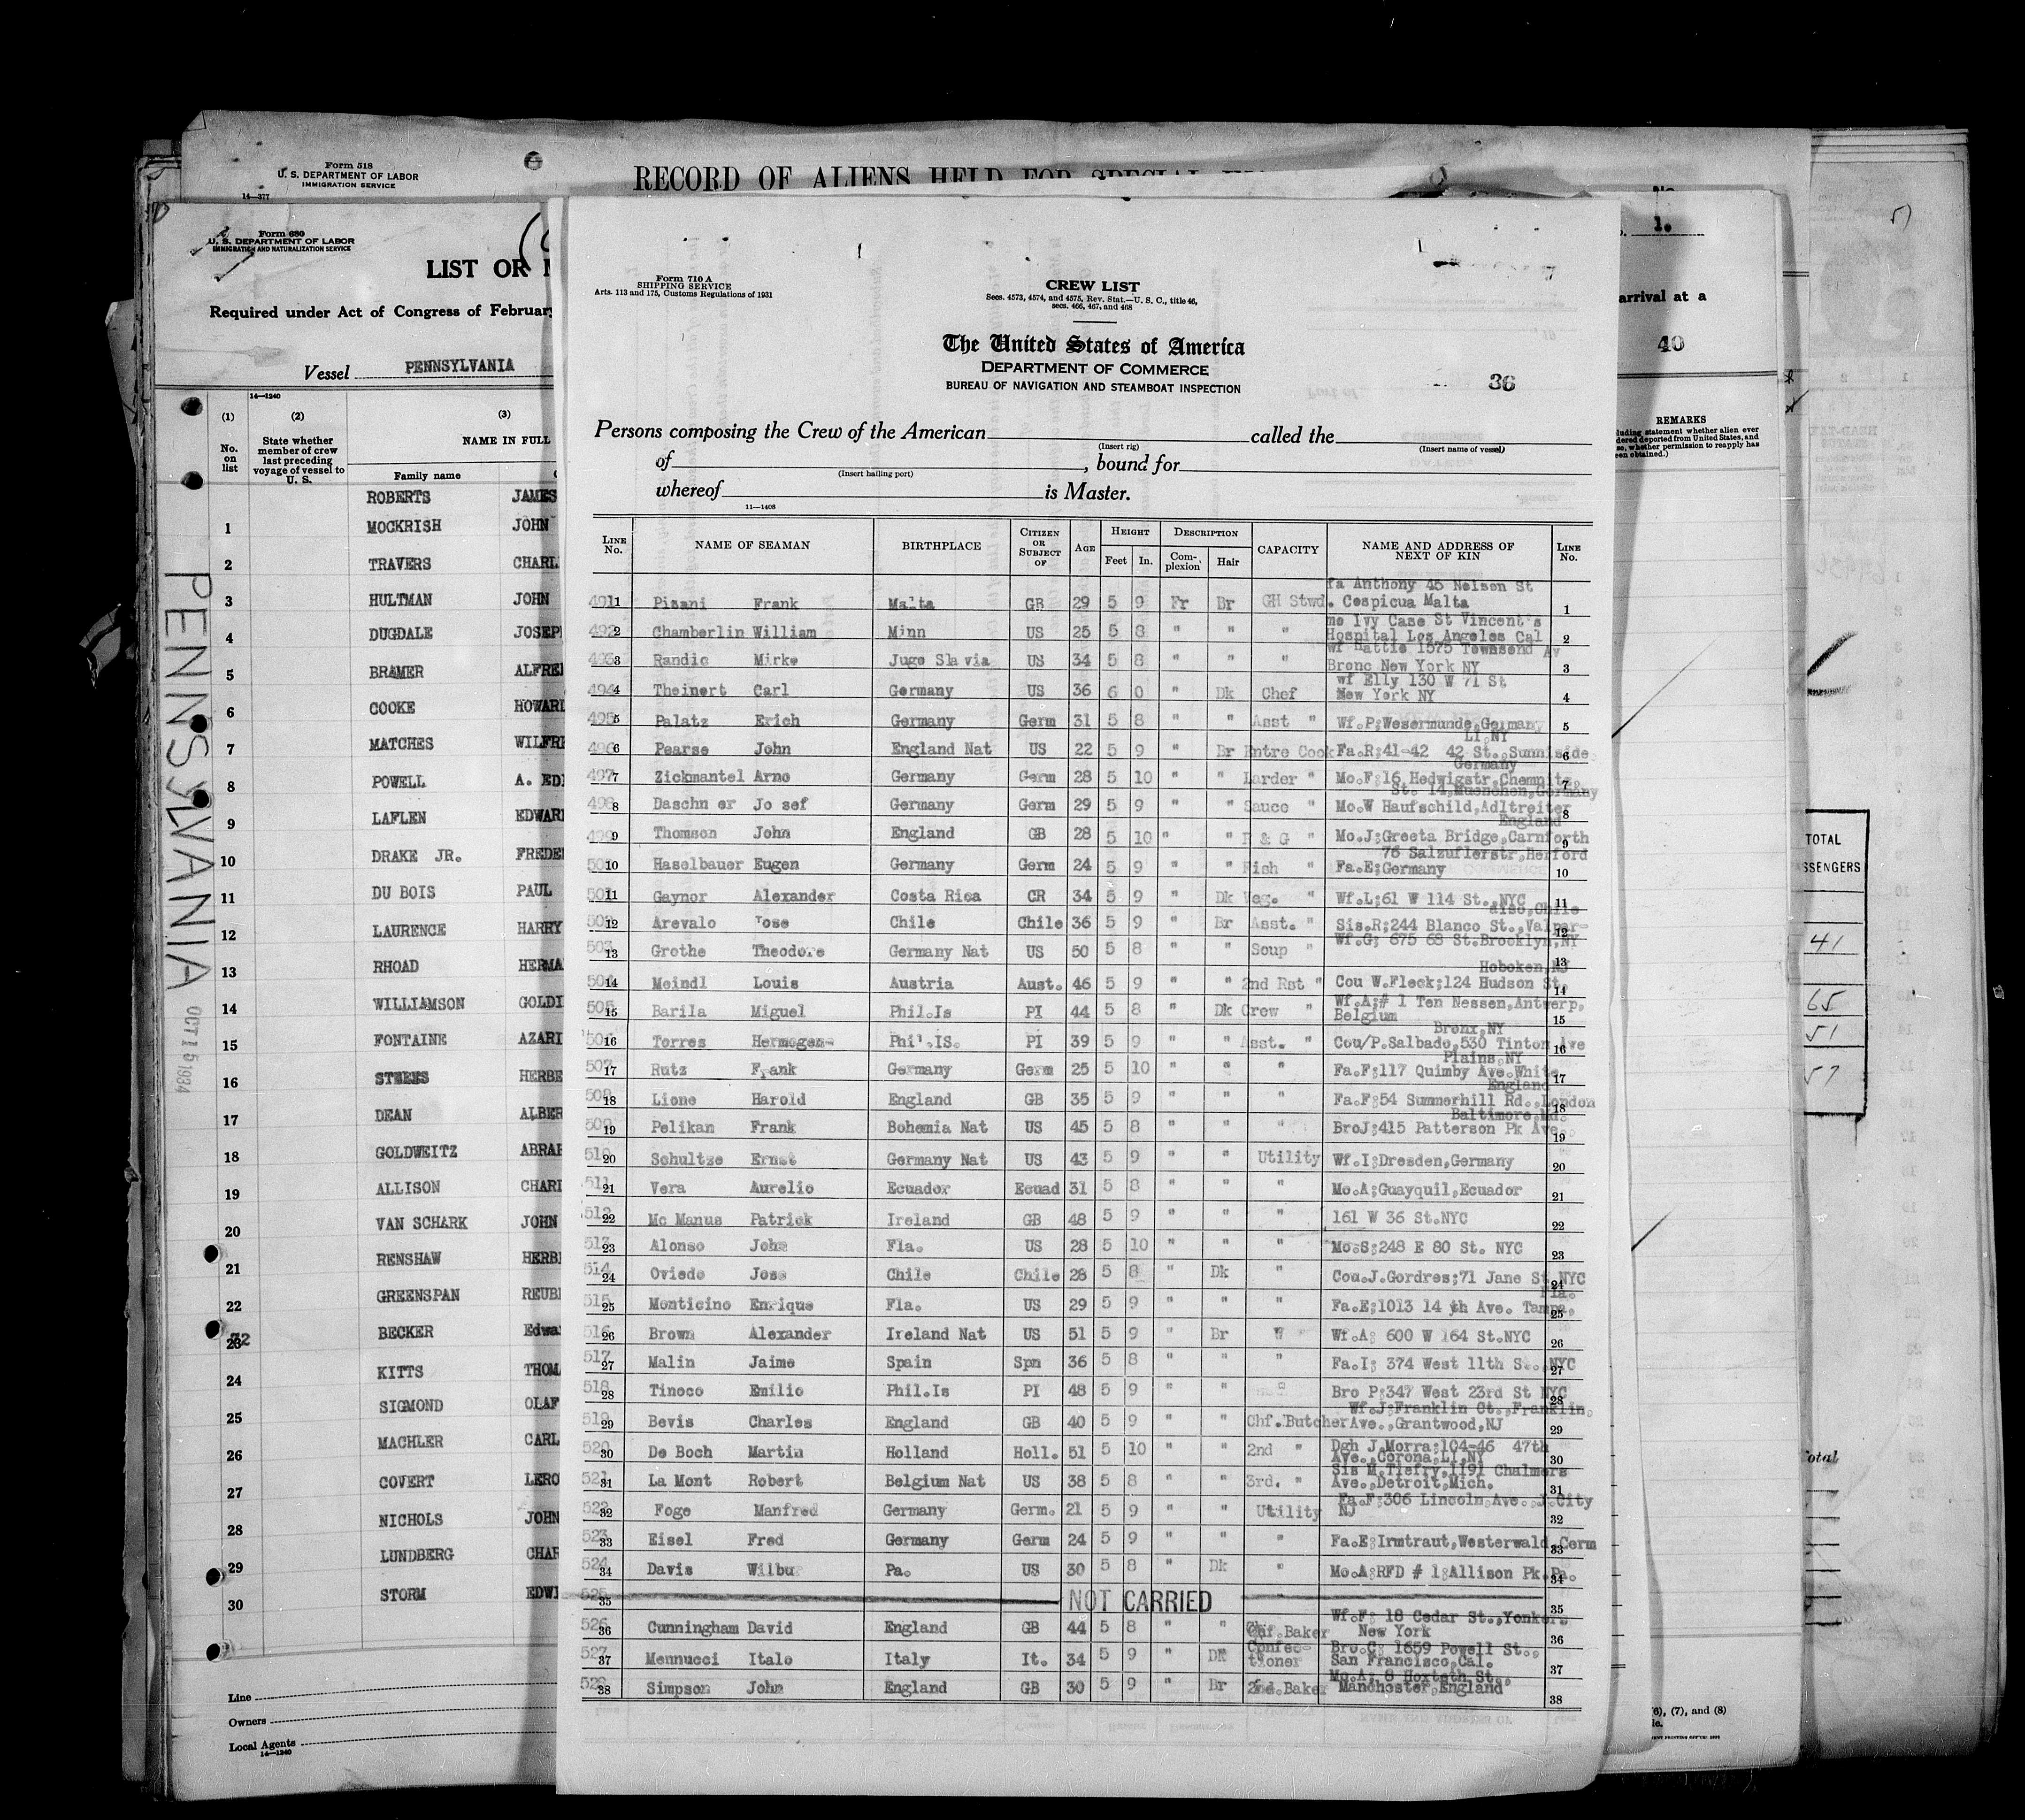 Form 518
U. S. DEPARTMENT OF LABOR
IMMIGRATION SERVICE
14—377
RECORD OF ALIENS HELD FOR SPECIAL
Form 680
U. S. DEPARTMENT OF LABOR
IMMIGRATION AND NATURALIZATION SERVICE
LIST OR
Required under Act of Congress of February
Vessel PENNSYLVANIA
14—1240
(1) (2) (3)
No. on list
State whether member of crew last preceding voyage of vessel to U. S.
NAME IN FULL
Family name
ROBERTS JAMES
1 MOCKRISH JOHN
2 TRAVERS CHARL
3 HULTMAN JOHN
4 DUGDALE JOSEP
5 BRAMER ALFRE
6 COOKE HOWAR
7 MATCHES WILFR
8 POWELL A. ED
9 LAFLEN EDWAR
10 DRAKE JR. FREDE
11 DU BOIS PAUL
12 LAURENCE HARRY
13 RHOAD HERMA
14 WILLIAMSON GOLDI
15 FONTAINE AZARI
16 HERBE
17 DEAN ALBER
18 GOLDWEITZ ABRAH
19 ALLISON CHARL
20 VAN SCHARK JOHN
21 RENSHAW HERB
22 GREENSPAN REUB
32 BECKER Edwa
24 KITTS THOM
25 SIGMOND OLAF
26 MACHLER CARL
27 COVERT LERO
28 NICHOLS JOHN
29 LUNDBERG CHAR
30 STORM EDWI
Line
Owners
Local Agents
14—1240
PENNSYLVANIA
OCT 15 1934
Form 710 A
SHIPPING SERVICE
Arts. 113 and 175, Customs Regulations of 1931
CREW LIST
Secs. 4573, 4574, and 4575, Rev. Stat.—U. S. C., title 46,
secs. 466, 467, and 468
The United States of America
DEPARTMENT OF COMMERCE
BUREAU OF NAVIGATION AND STEAMBOAT INSPECTION
36
Persons composing the Crew of the American called the
(Insert rig) (Insert name of vessel)
of , bound for
(Insert hailing port)
whereof is Master.
11—1408
LINE No. NAME OF SEAMAN BIRTHPLACE CITIZEN OR SUBJECT OF AGE HEIGHT Feet In. DESCRIPTION Complexion Hair CAPACITY NAME AND ADDRESS OF NEXT OF KIN LINE No.
fa Anthony 45 Nelson St
491 1 Pisani Frank Malta GB 29 5 9 Fr Br GH Stwd. Cospicua Malta 1
mo Ivy Case St Vincent's
492 2 Chamberlin William Minn US 25 5 8 " " " Hospital Los Angeles Cal 2
wf Hattie 1575 Townsend Av
493 3 Randic Mirko Jugo Slavia US 34 5 8 " " " Bronc New York NY 3
wf Elly 130 W 71 St
494 4 Theinert Carl Germany US 36 6 0 " Dk Chef New York NY 4
495 5 Palatz Erich Germany Germ 31 5 8 " " Asst " Wf.P;Wesermunde,Germany 5
LI,NY
496 6 Pearse John England Nat US 22 5 9 " Br Entre Cook Fa.R;41-42 42 St.,Sunniside 6
Germany
497 7 Zickmantel Arno Germany Germ 28 5 10 " " Larder " Mo.F;16 Hedwigstr,Chemnitz, 7
St. 14,Muenchen,Germany
498 8 Daschn er Jo sef Germany Germ 29 5 9 " " Sauce " Mo.W Haufschild,Adltreiter 8
England
499 9 Thomson John England GB 28 5 10 " " R & G " Mo.J;Greeta Bridge,Carnforth 9
76 Salzuflerstr,Herford
500 10 Haselbauer Eugen Germany Germ 24 5 9 " " Fish " Fa.E;Germany 10
501 11 Gaynor Alexander Costa Rica CR 34 5 9 " Dk Veg. " Wf.L;61 W 114 St.,NYC 11
aiso,Chile
502 12 Arevalo Jose Chile Chile 36 5 9 " Br Asst. " Sis.R;244 Blanco St.,Valpar- 12
Wf.G; 675 68 St.Brooklyn,NY
503 13 Grothe Theodore Germany Nat US 50 5 8 " " Soup " 13
Hoboken,NJ
504 14 Meindl Louis Austria Aust. 46 5 9 " " 2nd Rst " Cou W.Fleck;124 Hudson St. 14
Wf.A;# 1 Ten Nessen,Antwerp,
505 15 Barila Miguel Phil.Is PI 44 5 8 " Dk Crew " Belgium 15
Bronx,NY
506 16 Torres Hermogen- Phil.IS. PI 39 5 9 " " Asst. " Cou/P.Salbado,530 Tinton Ave 16
Plains,NY
507 17 Rutz Frank Germany Germ 25 5 10 " " " Fa.F;117 Quimby Ave.White 17
England
508 18 Lione Harold England GB 35 5 9 " " " Fa.F;54 Summerhill Rd.,London 18
Baltimore,Md.
509 19 Pelikan Frank Bohemia Nat US 45 5 8 " " " BroJ;415 Patterson Pk Ave. 19
510 20 Schultze Ernst Germany Nat US 43 5 9 " " Utility Wf.I;Dresden,Germany 20
511 21 Vera Aurelio Ecuador Ecuad 31 5 8 " " " Mo.A;Guayquil,Ecuador 21
512 22 Mc Manus Patrick Ireland GB 48 5 9 " " " 161 W 36 St.NYC 22
513 23 Alonso John Fla. US 28 5 10 " " " Mo.S;248 E 80 St. NYC 23
514 24 Oviedo Jose Chile Chile 28 5 8 " Dk " Cou.J.Gordres;71 Jane St NYC 24
Fla.
515 25 Monticino Enrique Fla. US 29 5 9 " " " Fa.E;1013 14 th Ave. Tampa, 25
516 26 Brown Alexander Ireland Nat US 51 5 9 " Br " Wf.A; 600 W 164 St.NYC 26
517 27 Malin Jaime Spain Spn 36 5 8 " " " Fa.I; 374 West 11th St.,NYC 27
518 28 Tinoco Emilio Phil.Is PI 48 5 9 " " Bro P;347 West 23rd St NYC 28
Wf.J;Franklin Ct.,Franklin,
519 29 Bevis Charles England GB 40 5 9 " " Chf.Butcher Ave.,Grantwood,NJ 29
Dgh J.Morra;104-46 47th
520 30 De Boch Martin Holland Holl. 51 5 10 " " 2nd " Ave.,Corona,LI,NY 30
Sis M.Tiefry,1191 Chalmers
521 31 La Mont Robert Belgium Nat US 38 5 8 " " 3rd. " Ave.,Detroit,Mich. 31
Fa.F;306 Lincoln Ave.,J.City
522 32 Foge Manfred Germany Germ. 21 5 9 " " Utility NJ 32
523 33 Eisel Fred Germany Germ 24 5 9 " " " Fa.E;Irmtraut,Westerwald,Germ 33
524 34 Davis Wilbu Pa. US 30 5 8 " Dk " Mo.A;RFD # 1;Allison Pk.Pa. 34
525 35 NOT CARRIED 35
Wf.F; 18 Cedar St.,Yonkers
526 36 Cunningham David England GB 44 5 8 " " Chf.Baker New York 36
Confec- Bro.C; 1659 Powell St.,
527 37 Mennucci Italo Italy It. 34 5 9 " DK tioner San Francisco,Cal. 37
Mo.A; 8 Hoxteth St.,
528 38 Simpson John England GB 30 5 9 " Br 2nd.Baker Manchester,England 38
1.
arrival at a
40
REMARKS
TOTAL
SSENGERS
41
65
51
57
otal
(6), (7), and (8)